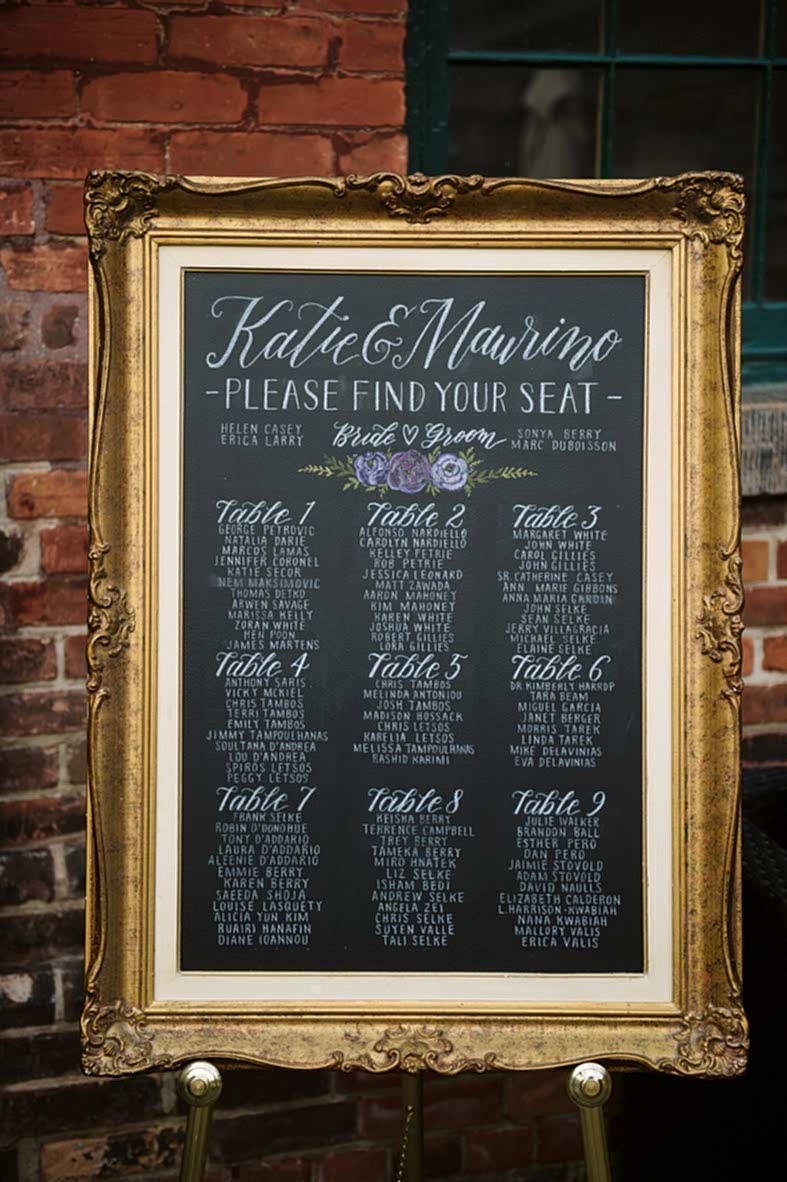 Katie & Maurino
- PLEASE FIND YOUR SEAT -
HELEN CASEY
ERICA LARRY
Bride ♡ Groom
SONYA BERRY
MARC DUBOISSON
Table 1
GEORGE PETROVIC
NATALIA DARIE
MARCOS LAMAS
JENNIFER CORONEL
KATIE SECOR
NEMI MAKSIMOVIC
THOMAS DETKO
ARWEN SAVAGE
MARISSA KELLY
ZORAN WHITE
HEN POON
JAMES MARTENS
Table 2
ALFONSO NARDIELLO
CAROLYN NARDIELLO
KELLEY PETRIE
ROB PETRIE
JESSICA LEONARD
MATT ZAWADA
AARON MAHONEY
KIM MAHONEY
KAREN WHITE
JOSHUA WHITE
ROBERT GILLIES
LORA GILLIES
Table 3
MARGARET WHITE
JOHN WHITE
CAROL GILLIES
JOHN GILLIES
SR. CATHERINE CASEY
ANN MARIE GIBBONS
ANNA MARIA GARDIN
JOHN SELKE
SEAN SELKE
JERRY VILLAGRACIA
MICHAEL SELKE
ELAINE SELKE
Table 4
ANTHONY SARIS
VICKY MCKIEL
CHRIS TAMBOS
TERRI TAMBOS
EMILY TAMBOS
JIMMY TAMPOULHANAS
SOULTANA D'ANDREA
LOU D'ANDREA
SPIROS LETSOS
PEGGY LETSOS
Table 5
CHRIS TAMBOS
MELINDA ANTONIOU
JOSH TAMBOS
MADISON HOSSACK
CHRIS LETSOS
KARELIA LETSOS
MELISSA TAMPOULHANAS
RASHID KARIMI
Table 6
DR KIMBERLY HARROP
TARA BEAM
MIGUEL GARCIA
JANET BERGER
MORRIS TAREK
LINDA TAREK
MIKE DELAVINIAS
EVA DELAVINIAS
Table 7
FRANK SELKE
ROBIN O'DONOHUE
TONY D'ADDARIO
LAURA D'ADDARIO
ALEENIE D'ADDARIO
EMMIE BERRY
KAREN BERRY
SAEEDA SHOJA
LOUISE LASQUETY
ALICIA YUN KIM
RUAIRI HANAFIN
DIANE IOANNOU
Table 8
KEISHA BERRY
TERRENCE CAMPBELL
TREY BERRY
TAMEKA BERRY
MIRO HNATEK
LIZ SELKE
ISHAM BEDI
ANDREW SELKE
ANGELA ZEI
CHRIS SELKE
SUYEN VALLE
TALI SELKE
Table 9
JULIE WALKER
BRANDON BALL
ESTHER PERO
DAN PERO
JAIMIE STOVOLD
ADAM STOVOLD
DAVID NAULLS
ELIZABETH CALDERON
L. HARRISON-KWABIAH
NANA KWABIAH
MALLORY VALIS
ERICA VALIS